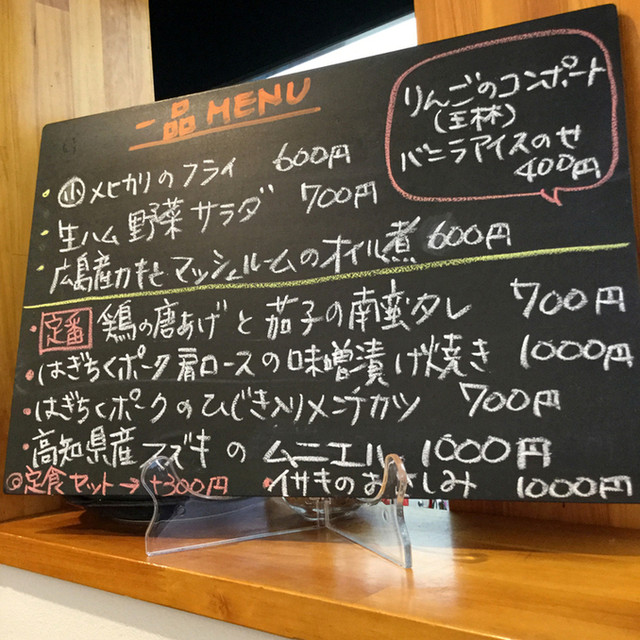 一品MENU
りんごのコンポート
(王林)
バニラアイスのせ
400円
小 メヒカリのフライ 600円
生ハム 野菜サラダ 700円
広島産カキとマッシュルームのオイル煮 600円
定番 鶏の唐あげと茄子の南蛮タレ 700円
はぎちくポーク肩ロースの味噌漬け焼き 1000円
はぎちくポークのひじき入りメンチカツ 700円
高知県産スズキのムニエル 1000円
◎定食セット→+300円
イサキのおさしみ 1000円